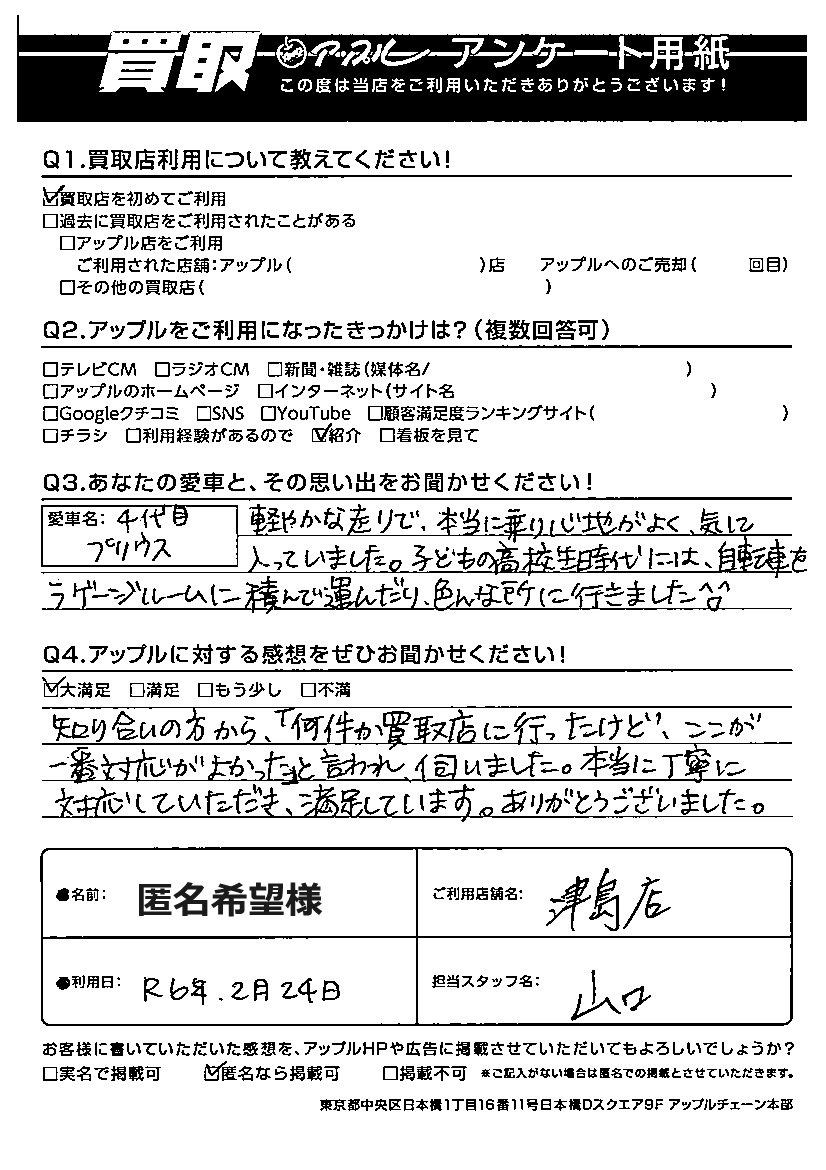 買取 アップル アンケート用紙
この度は当店をご利用いただきありがとうございます!
Q1.買取店利用について教えてください!
☑買取店を初めてご利用
□過去に買取店をご利用されたことがある
□アップル店をご利用
ご利用された店舗:アップル( )店 アップルへのご売却( 回目)
□その他の買取店( )
Q2.アップルをご利用になったきっかけは?(複数回答可)
□テレビCM □ラジオCM □新聞・雑誌(媒体名/ )
□アップルのホームページ □インターネット(サイト名 )
□Googleクチコミ □SNS □YouTube □顧客満足度ランキングサイト( )
□チラシ □利用経験があるので ☑紹介 □看板を見て
Q3.あなたの愛車と、その思い出をお聞かせください!
愛車名: 4代目
プリウス
軽やかな走りで、本当に乗り心地がよく、気に
入っていました。子どもの高校生時代には、自転車を
ラゲージルームに積んで運んだり、色んな所に行きました^o^
Q4.アップルに対する感想をぜひお聞かせください!
☑大満足 □満足 □もう少し □不満
知り合いの方から、「何件か買取店に行ったけど、ここが
一番対応がよかった」と言われ、伺いました。本当に丁寧に
対応していただき、満足しています。ありがとうございました。
●名前: 匿名希望様
ご利用店舗名: 津島店
●利用日: R6年.2月24日
担当スタッフ名: 山口
お客様に書いていただいた感想を、アップルHPや広告に掲載させていただいてもよろしいでしょうか?
□実名で掲載可 ☑匿名なら掲載可 □掲載不可 ※ご記入がない場合は匿名での掲載とさせていただきます。
東京都中央区日本橋1丁目16番11号日本橋Dスクエア9F アップルチェーン本部